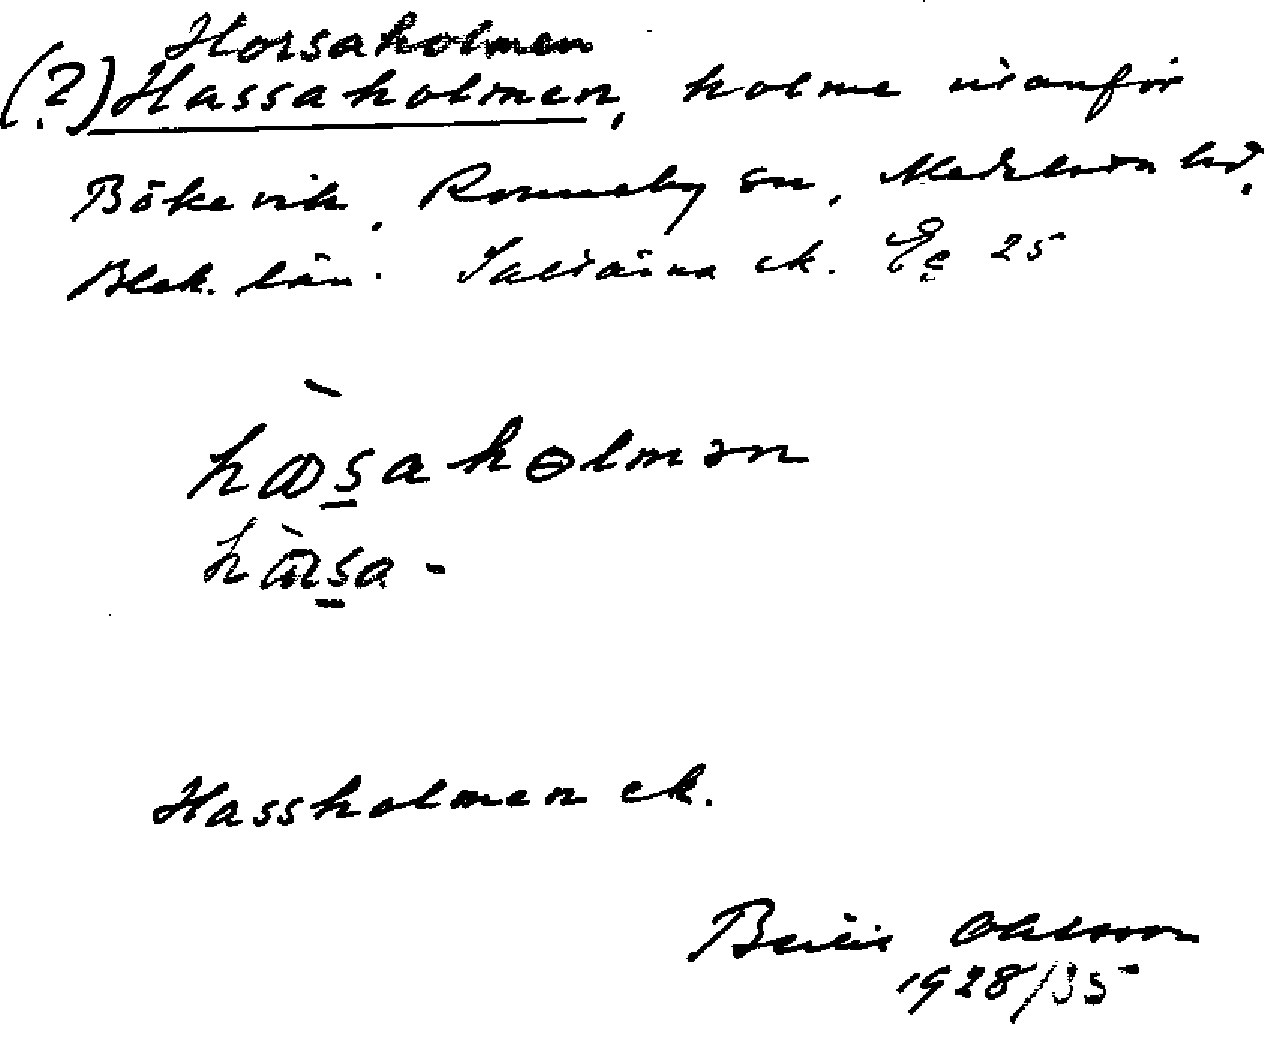 Horsaholmen
(?) Hassaholmen, holme utanför
Bökevik, Ronneby sn, Medelsta hd,
Blek. län. Saltärna ek. Ec 25
hɑsahɵlmən
hɑrsa-
Hassholmen ek.
Bertil Ohlsson
1928/35